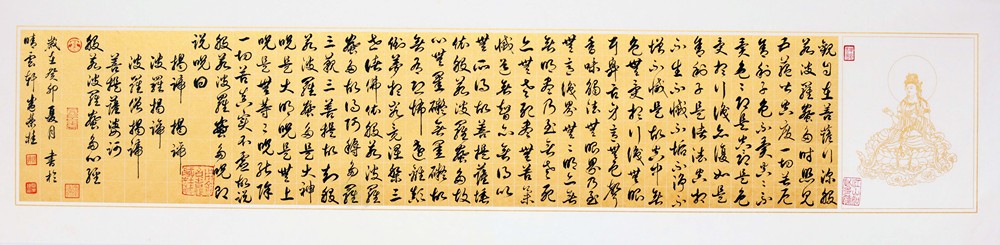 觀自在菩薩行深般
若波羅蜜多時照見
五蘊皆空度一切苦厄
舍利子色不異空空不
異色色即是空空即是色
受想行識亦復如是
舍利子是法空相
不生不滅不垢不淨不
增不減是故空中無
色無受想行識無眼
耳鼻舌身意無色聲
香味觸法無眼界乃至
無意識界無無明亦無
無明盡乃至無老死
亦無老死盡無苦集
滅道無智亦無得以
無所得故菩提薩埵
依般若波羅蜜多故
心無罣礙無罣礙故
無有恐怖遠離顛
倒夢想究竟涅槃三
世諸佛依般若波羅
蜜多故得阿耨多羅
三藐三菩提故知般
若波羅蜜多是大神
咒是大明咒是無上
咒是無等等咒能除
一切苦真實不虛故說
般若波羅蜜多咒即
說咒曰
揭諦 揭諦
波羅揭諦
波羅僧揭諦
菩提薩婆訶
般若波羅蜜多心經
歲在癸卯夏月 書於
晴雲軒